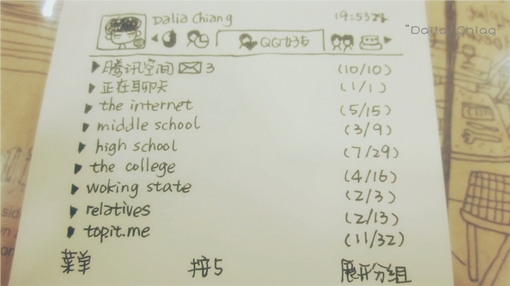 Dalia Chiang 19:53
QQ好友
腾讯空间 3 (10/10)
正在聊天 (1/1)
the internet (5/15)
middle school (3/9)
high school (7/29)
the college (4/16)
woking state (2/3)
relatives (2/13)
topit.me (11/32)
菜单 按5 展开分组
"Dalia Chiang"